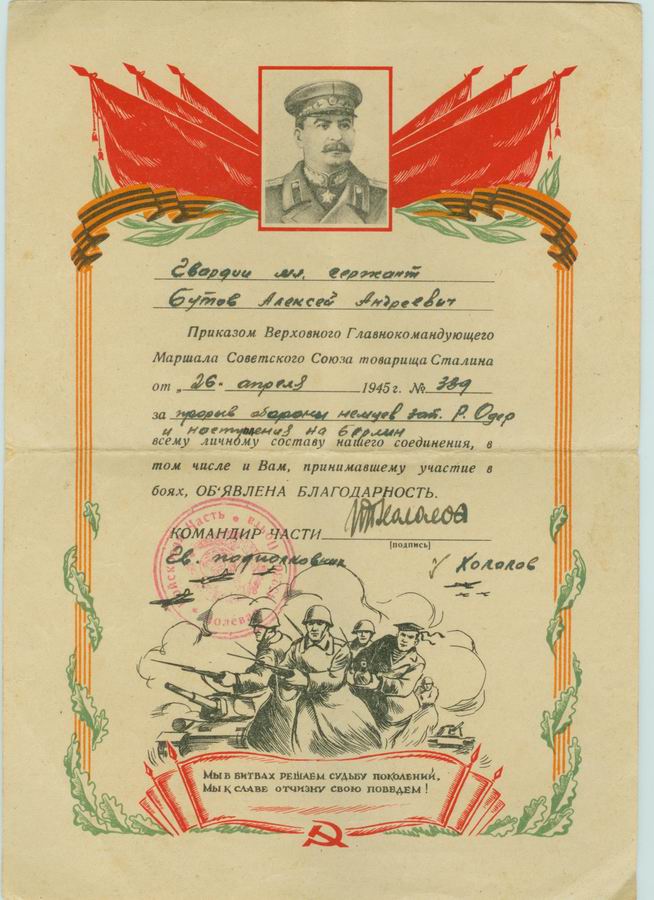 Гвардии мл. сержант
Бутов Алексей Андреевич
Приказом Верховного Главнокомандующего
Маршала Советского Союза товарища Сталина
от „26“ апреля 1945 г. № 339
за прорыв обороны немцев зап. р. Одер
и наступления на Берлин
всему личному составу нашего соединения, в
том числе и Вам, принимавшему участие в
боях, ОБ'ЯВЛЕНА БЛАГОДАРНОСТЬ.
КОМАНДИР ЧАСТИ
(подпись)
Гв. подполковник
Часть
Полевая
МЫ В БИТВАХ РЕШАЕМ СУДЬБУ ПОКОЛЕНИЙ,
МЫ К СЛАВЕ ОТЧИЗНУ СВОЮ ПОВЕДЕМ!